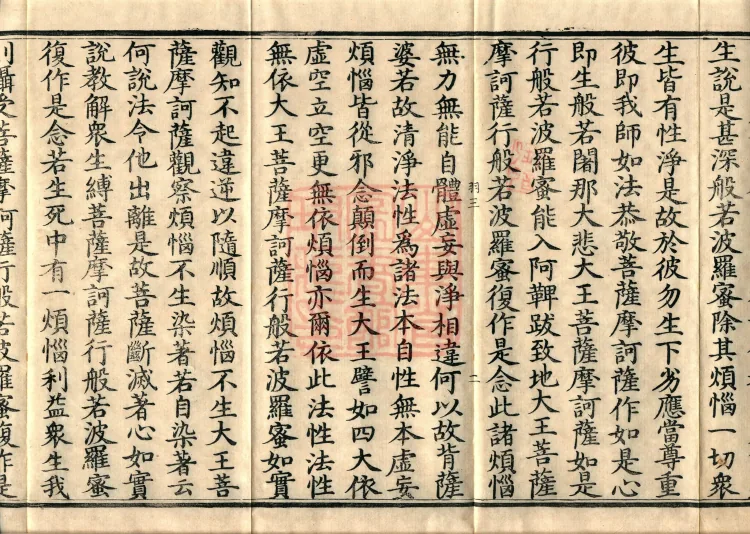 生說是甚深般若波羅蜜除其煩惱一切衆
生皆有性淨是故於彼勿生下劣應當尊重
彼即我師如法恭敬菩薩摩訶薩作如是心
即生般若闍那大悲大王菩薩摩訶薩如是
行般若波羅蜜能入阿鞞跋致地大王菩薩
摩訶薩行般若波羅蜜復作是念此諸煩惱
羽三
二
無力無能自體虛妄與淨相違何以故背薩
婆若故清淨法性爲諸法本自性無本虛妄
煩惱皆從邪念顛倒而生大王譬如四大依
虛空立空更無依煩惱亦爾依此法性法性
無依大王菩薩摩訶薩行般若波羅蜜如實
觀知不起違逆以隨順故煩惱不生大王菩
薩摩訶薩觀察煩惱不生染著若自染著云
何說法令他出離是故菩薩斷滅著心如實
說教解衆生縛菩薩摩訶薩行般若波羅蜜
復作是念若生死中有一煩惱利益衆生我
則攝受菩薩摩訶薩行般若波羅蜜復作是